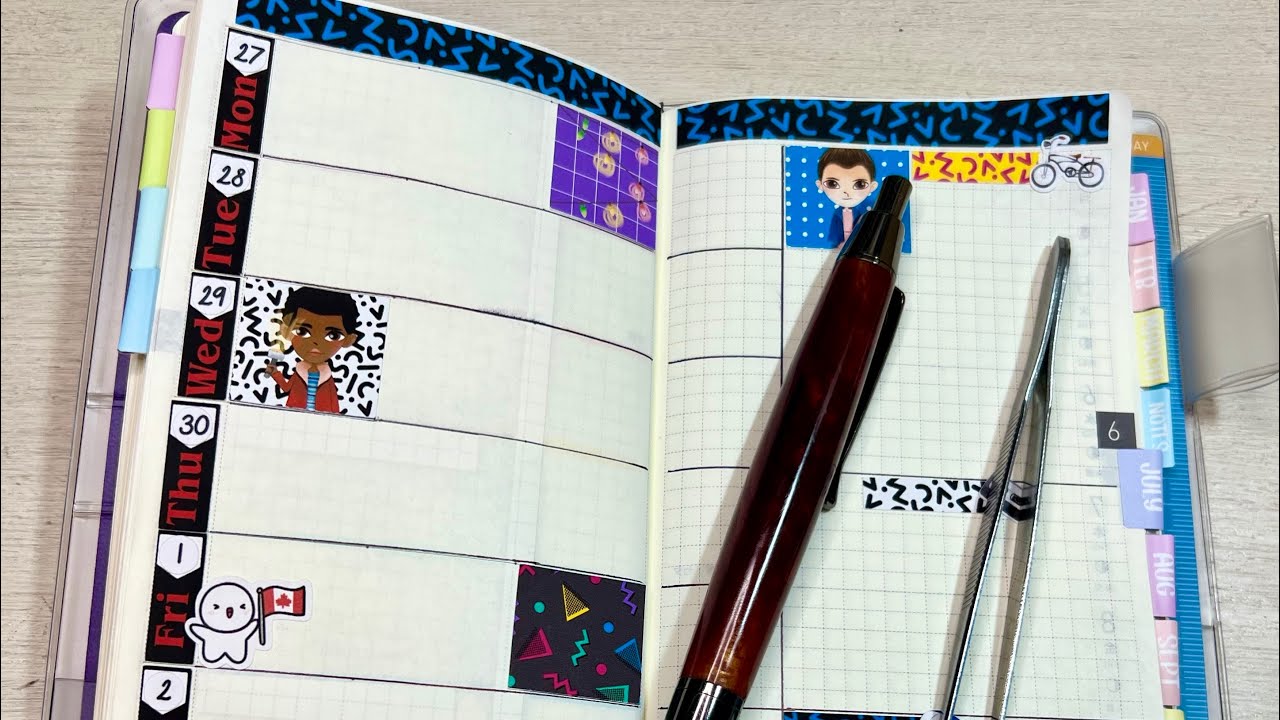 27
Mon
28
Tue
29
Wed
30
Thu
1
Fri
2
6
AY
JAN
FEB
NOTES
JULY
AUG
SEPT